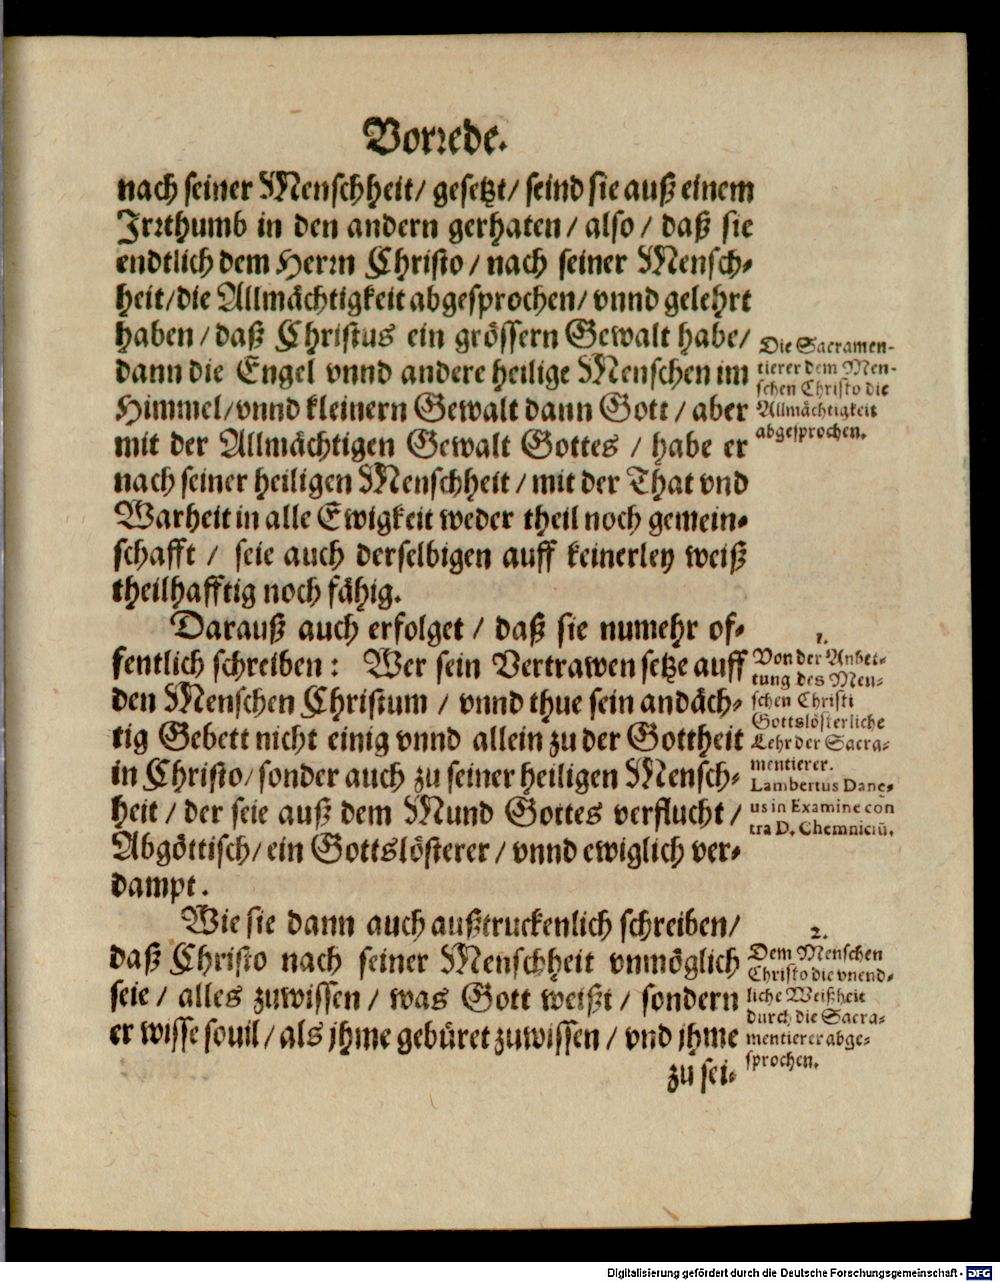 Vorrede.
nach seiner Menschheit/ gesetzt/ seind sie auß einem
Jrrthumb in den andern gerhaten / also / daß sie
endtlich dem Herrn Christo / nach seiner Mensch-
heit/die Allmächtigkeit abgesprochen/ vnnd gelehrt
haben / daß Christus ein grössern Gewalt habe/
dann die Engel vnnd andere heilige Menschen im
Himmel/vnnd kleinern Gewalt dann Gott / aber
mit der Allmächtigen Gewalt Gottes / habe er
nach seiner heiligen Menschheit / mit der That vnd
Warheit in alle Ewigkeit weder theil noch gemein-
schafft / seie auch derselbigen auff keinerley weiß
theilhafftig noch fähig.
Die Sacramen-
tierer dem Men-
schen Christo die
Allmächtigkeit
abgesprochen.
Darauß auch erfolget / daß sie numehr of-
fentlich schreiben: Wer sein Vertrawen setze auff
den Menschen Christum / vnnd thue sein andäch-
tig Gebett nicht einig vnnd allein zu der Gottheit
in Christo/ sonder auch zu seiner heiligen Mensch-
heit / der seie auß dem Mund Gottes verflucht /
Abgöttisch/ ein Gottslösterer / vnnd ewiglich ver-
dampt.
1.
Von der Anbet-
tung des Men-
schen Christi
Gottslösterliche
Lehr der Sacra-
mentierer.
Lambertus Dane-
us in Examine con
tra D. Chemniciū.
Wie sie dann auch außtruckenlich schreiben/
daß Christo nach seiner Menschheit vnmöglich
seie / alles zuwissen / was Gott weißt / sondern
er wisse souil / als jhme gebüret zuwissen / vnd jhme
zu sei-
2.
Dem Menschen
Christo die vnend-
liche Weißheit
durch die Sacra-
mentierer abge-
sprochen.
Digitalisierung gefördert durch die Deutsche Forschungsgemeinschaft - DFG